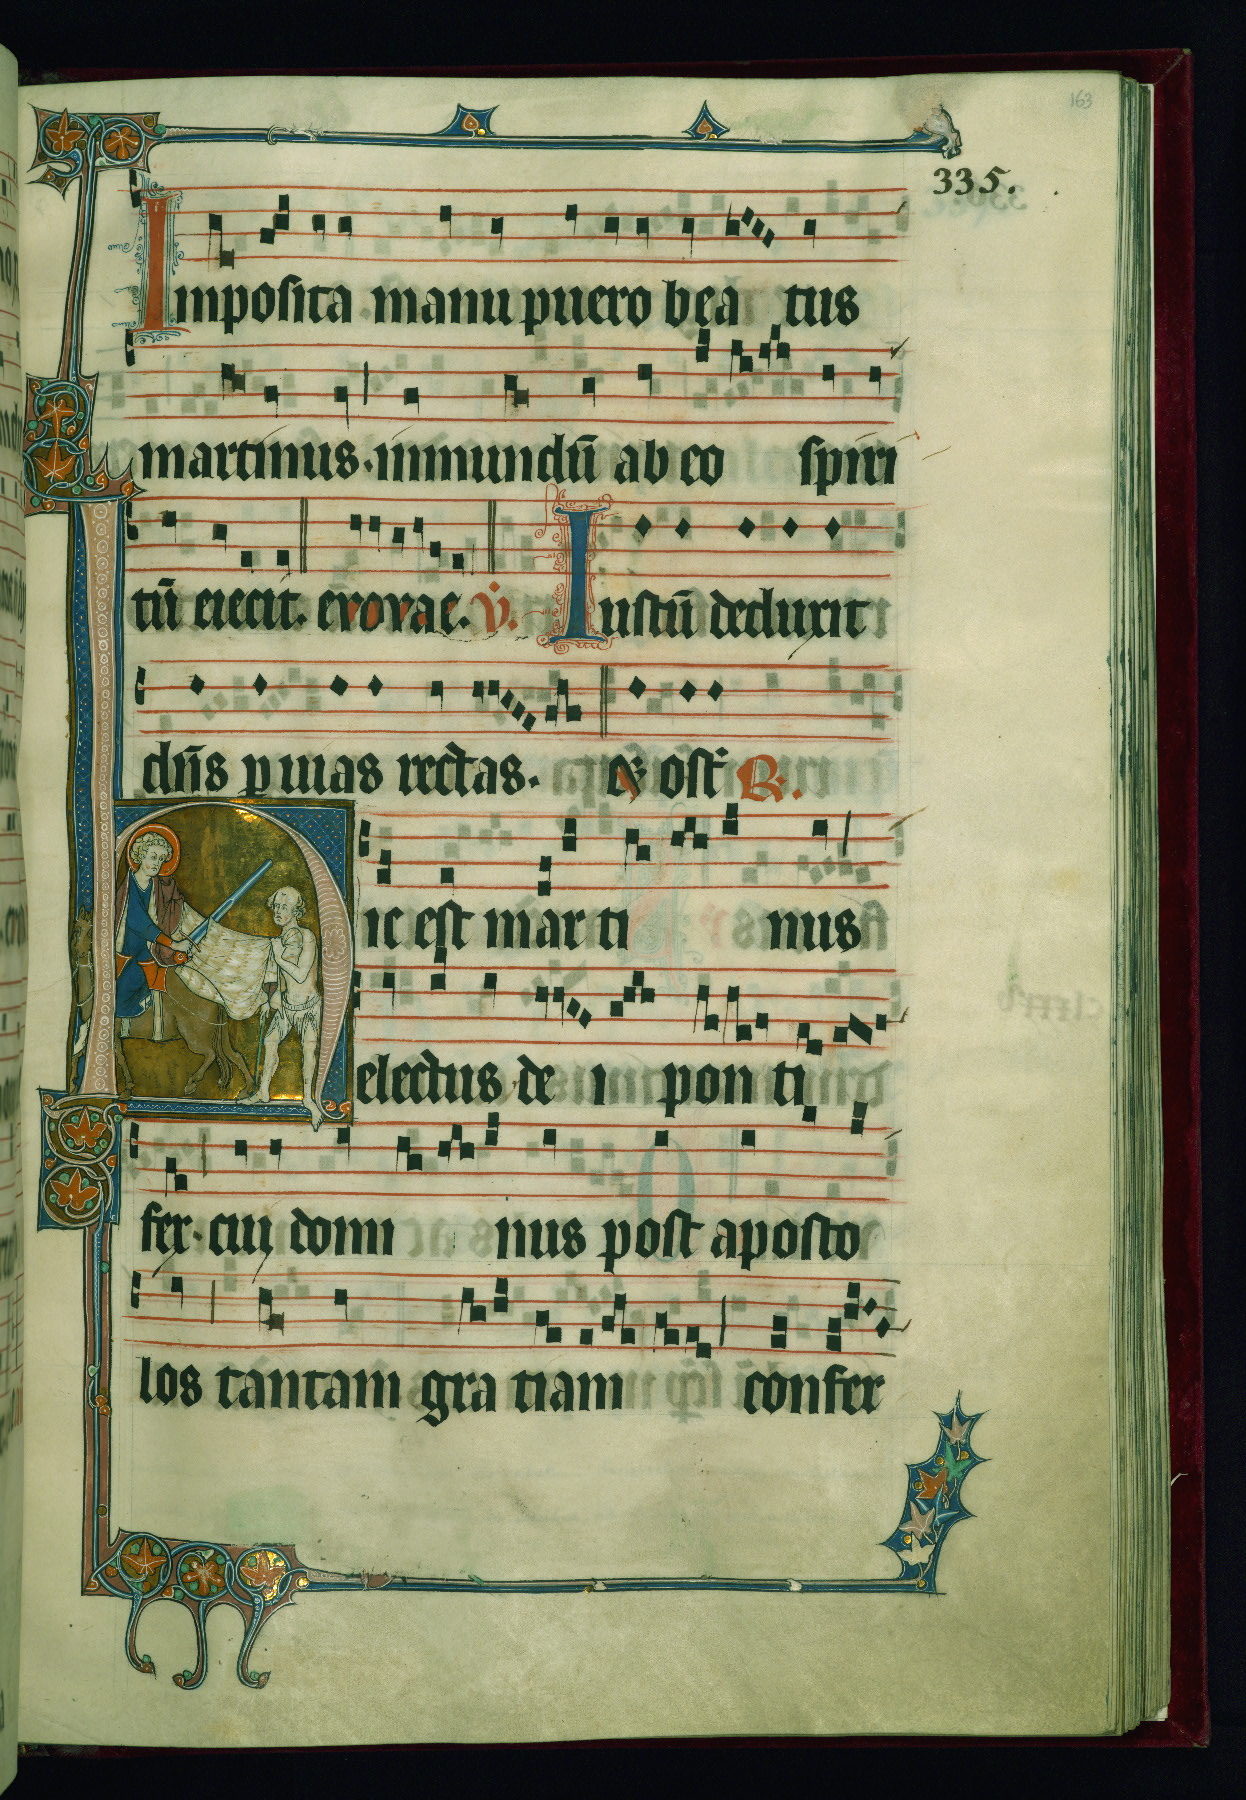 163
335.
Imposita manu puero bea tus
martinus. inmundū ab eo spiri
tū eiecit. evovae. V̇. Iustū deduxit
dn̄s ꝑ uias rectas. & ost̉ R.
Hic est mar ti nus
electus de i pon ti
fex. cui domi nus post aposto
los tantam gra tiam confer